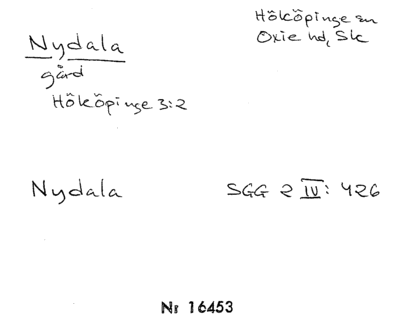 Hököpinge sn
Oxie hd, Sk
Nydala
gård
Hököpinge 3:2
Nydala
SGG 2 IV: 426
Nr 16453